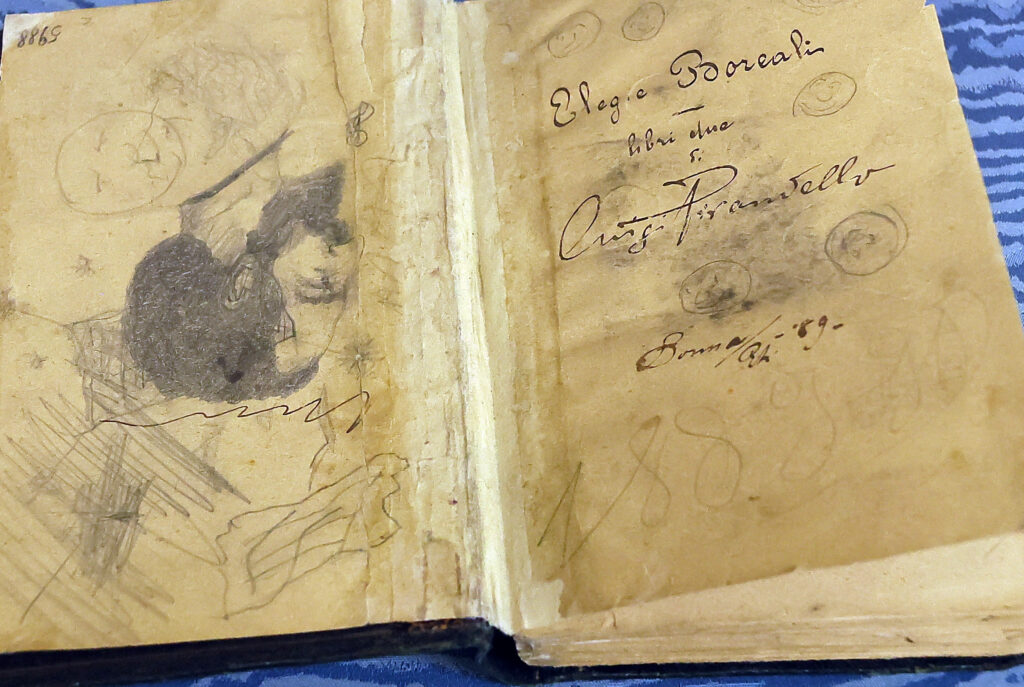 5988
Elegie Boreali
libri due
di
Luigi Pirandello
Bonn a/Rh. '89.-
1889